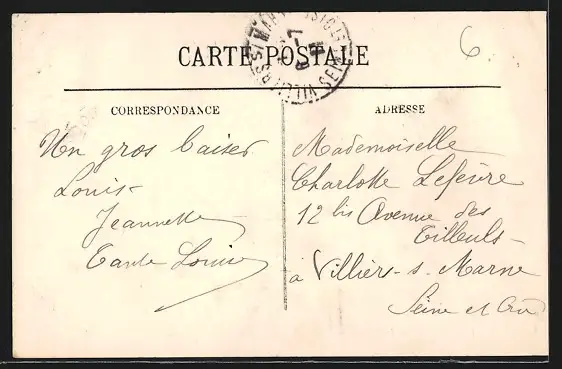 CARTE POSTALE
6
CORRESPONDANCE
Un gros baiser
Louis
Jeannette
Tante Louise
ADRESSE
Mademoiselle
Charlotte Lefèvre
12 bis Avenue des
Tilleuls
à Villiers-s-Marne
Seine et Oise